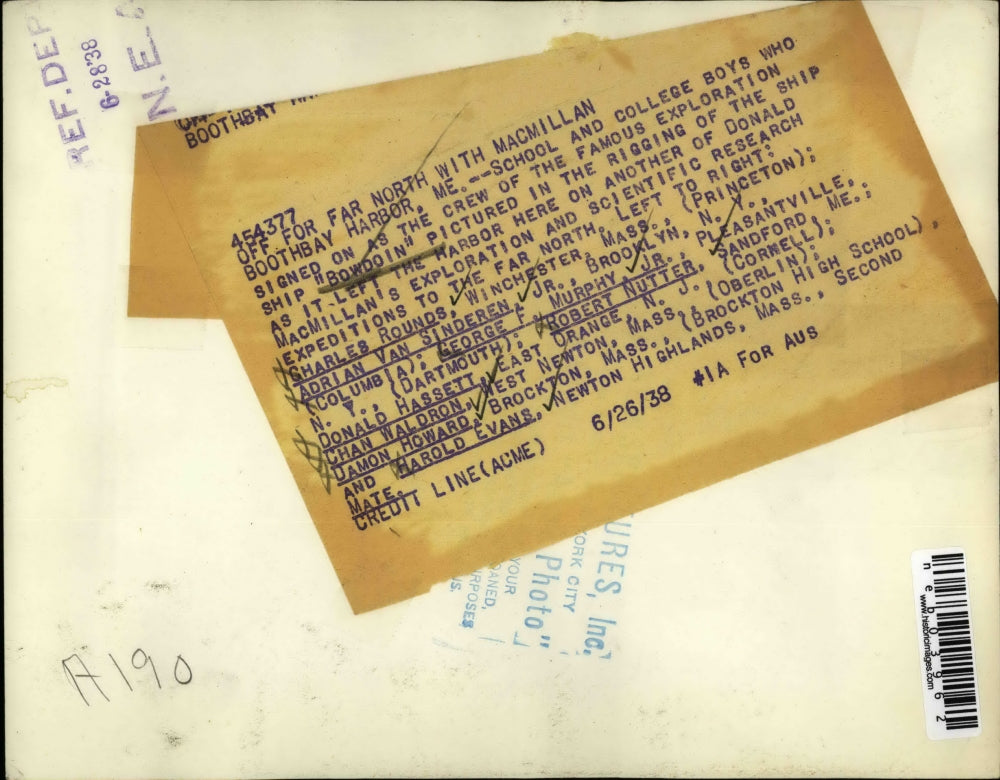 REF.DEP
6-28-38
N.E.A
BOOTHBAY
454377
OFF FOR FAR NORTH WITH MACMILLAN
BOOTHBAY HARBOR, ME.--SCHOOL AND COLLEGE BOYS WHO
SIGNED ON AS THE CREW OF THE FAMOUS EXPLORATION
SHIP "BOWDOIN" PICTURED IN THE RIGGING OF THE SHIP
AS IT LEFT THE HARBOR HERE ON ANOTHER OF DONALD
MACMILLAN'S EXPLORATION AND SCIENTIFIC RESEARCH
EXPEDITIONS TO THE FAR NORTH, LEFT TO RIGHT:
CHARLES ROUNDS, WINCHESTER, MASS., (PRINCETON);
ADRIAN VAN SINDEREN, JR., BROOKLYN, N. Y.,
(COLUMBIA); GEORGE F. MURPHY, JR., PLEASANTVILLE,
N. Y., (DARTMOUTH); ROBERT NUTTER, SANDFORD, ME.;
DONALD HASSETT, EAST ORANGE, N. J. (CORNELL);
CHAN WALDRON, WEST NEWTON, MASS., (OBERLIN);
DAMON HOWARD, BROCKTON, MASS., (BROCKTON HIGH SCHOOL),
AND HAROLD EVANS, NEWTON HIGHLANDS, MASS., SECOND
MATE.
CREDIT LINE(ACME) 6/26/38 #1A FOR AUS
URES, Inc.
ORK CITY
Photo"
YOUR
OANED,
RPOSES
US.
A190
neb03962
www.historicimages.com